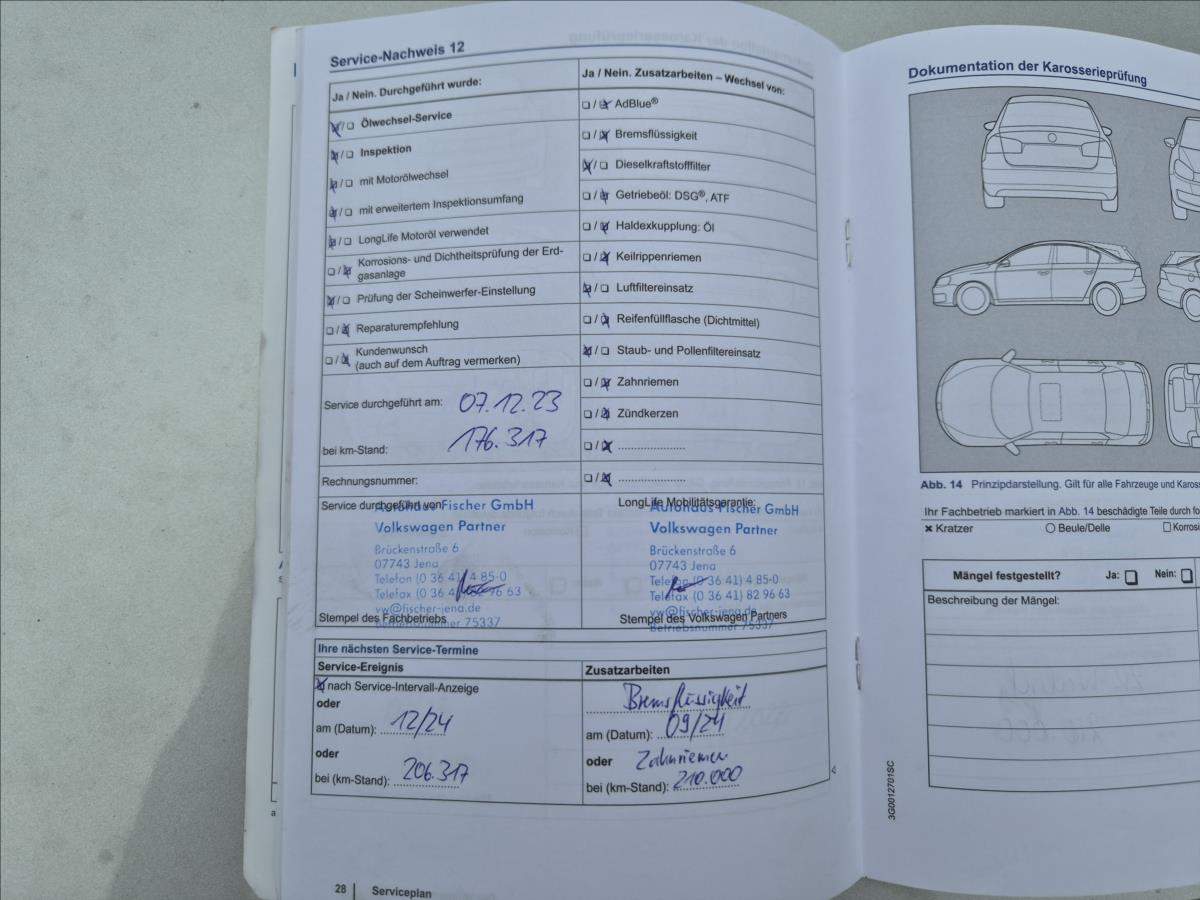 Service-Nachweis 12
Ja / Nein. Durchgeführt wurde:
Ölwechsel-Service
Inspektion
mit Motorölwechsel
mit erweitertem Inspektionsumfang
LongLife Motoröl verwendet
Korrosions- und Dichtheitsprüfung der Erd-
gasanlage
Prüfung der Scheinwerfer-Einstellung
Reparaturempfehlung
Kundenwunsch
(auch auf dem Auftrag vermerken)
Service durchgeführt am: 07.12.23
bei km-Stand: 176.317
Rechnungsnummer:
Ja / Nein. Zusatzarbeiten – Wechsel von:
AdBlue®
Bremsflüssigkeit
Dieselkraftstofffilter
Getriebeöl: DSG®, ATF
Haldexkupplung: Öl
Keilrippenriemen
Luftfiltereinsatz
Reifenfüllflasche (Dichtmittel)
Staub- und Pollenfiltereinsatz
Zahnriemen
Zündkerzen
Service durchgeführt von:
Autohaus Fischer GmbH
Volkswagen Partner
Brückenstraße 6
07743 Jena
Telefon (0 36 41) 4 85-0
Telefax (0 36 41) 82 96 63
vw@fischer-jena.de
Betriebsnummer 75337
Stempel des Fachbetriebs
LongLife Mobilitätsgarantie:
Autohaus Fischer GmbH
Volkswagen Partner
Brückenstraße 6
07743 Jena
Telefon (0 36 41) 4 85-0
Telefax (0 36 41) 82 96 63
vw@fischer-jena.de
Betriebsnummer 75337
Stempel des Volkswagen Partners
Ihre nächsten Service-Termine
Service-Ereignis
nach Service-Intervall-Anzeige
oder
am (Datum): 12/24
oder
bei (km-Stand): 206.317
Zusatzarbeiten
Bremsflüssigkeit
am (Datum): 09/24
oder Zahnriemen
bei (km-Stand): 210.000
28 Serviceplan
Dokumentation der Karosserieprüfung
Abb. 14 Prinzipdarstellung. Gilt für alle Fahrzeuge und
Ihr Fachbetrieb markiert in Abb. 14 beschädigte Teile durch
Kratzer
Beule/Delle
Mängel festgestellt? Ja: Nein:
Beschreibung der Mängel:
3G0012701SC